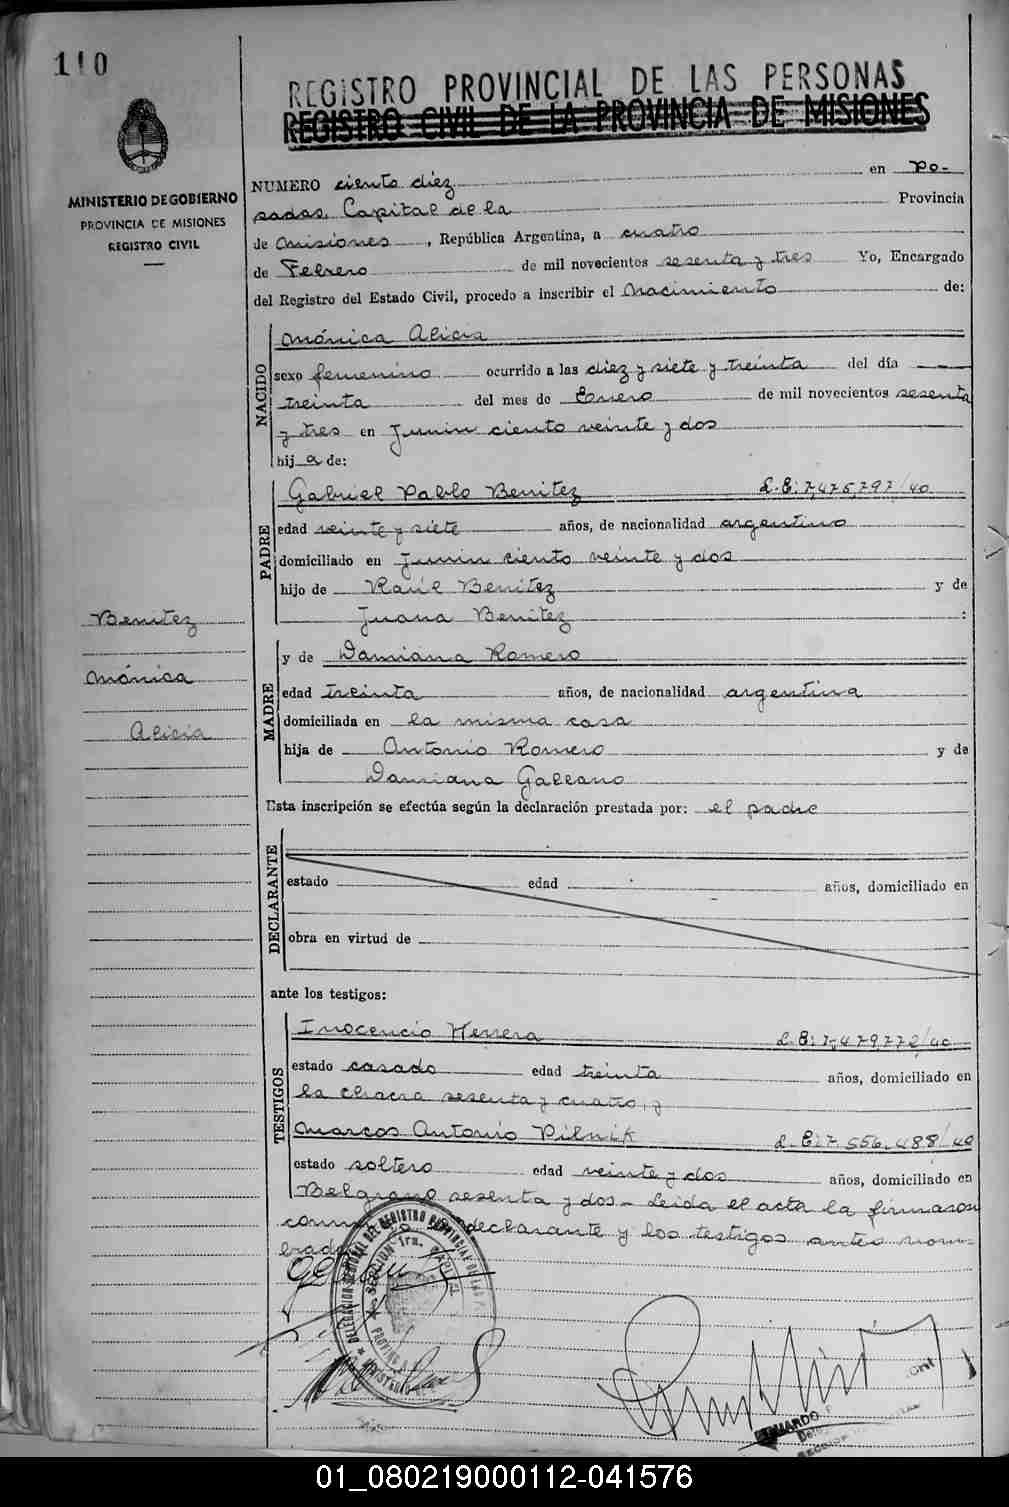 110
REGISTRO PROVINCIAL DE LAS PERSONAS
REGISTRO CIVIL DE LA PROVINCIA DE MISIONES
MINISTERIO DE GOBIERNO
PROVINCIA DE MISIONES
REGISTRO CIVIL
NUMERO ciento diez en Po-
sadas, Capital de la Provincia
de Misiones, República Argentina, a cuatro
de Febrero de mil novecientos sesenta y tres Yo, Encargado
del Registro del Estado Civil, procedo a inscribir el Nacimiento de:
NACIDO
Mónica Alicia
sexo femenino ocurrido a las diez y siete y treinta del día
treinta del mes de Enero de mil novecientos sesenta
y tres en Junin ciento veinte y dos
hija de:
PADRE
Gabriel Pablo Benitez L.E: 7,475,797/40
edad veinte y siete años, de nacionalidad argentino
domiciliado en Junin ciento veinte y dos
hijo de Raúl Benitez y de
Juana Benitez :
Benitez
Mónica
Alicia
MADRE
y de Damiana Romero
edad treinta años, de nacionalidad argentina
domiciliada en la misma casa
hija de Antonio Romero y de
Damiana Galeano
Esta inscripción se efectúa según la declaración prestada por: el padre
DECLARANTE
estado edad años, domiciliado en
obra en virtud de
ante los testigos:
TESTIGOS
Inocencio Herrera L.E: 7,479,772/40
estado casado edad treinta años, domiciliado en
la chacra sesenta y cuatro, y
Marcos Antonio Pilnik L.E: 7.556.488/40
estado soltero edad veinte y dos años, domiciliado en
Belgrano sesenta y dos - Leida el acta la firmaron
declarante y los testigos antes nom-
DELEGACION REGISTRO PROVINCIAL DE LAS
SECCION 1ra. CAPITAL
EDUARDO
01_080219000112-041576